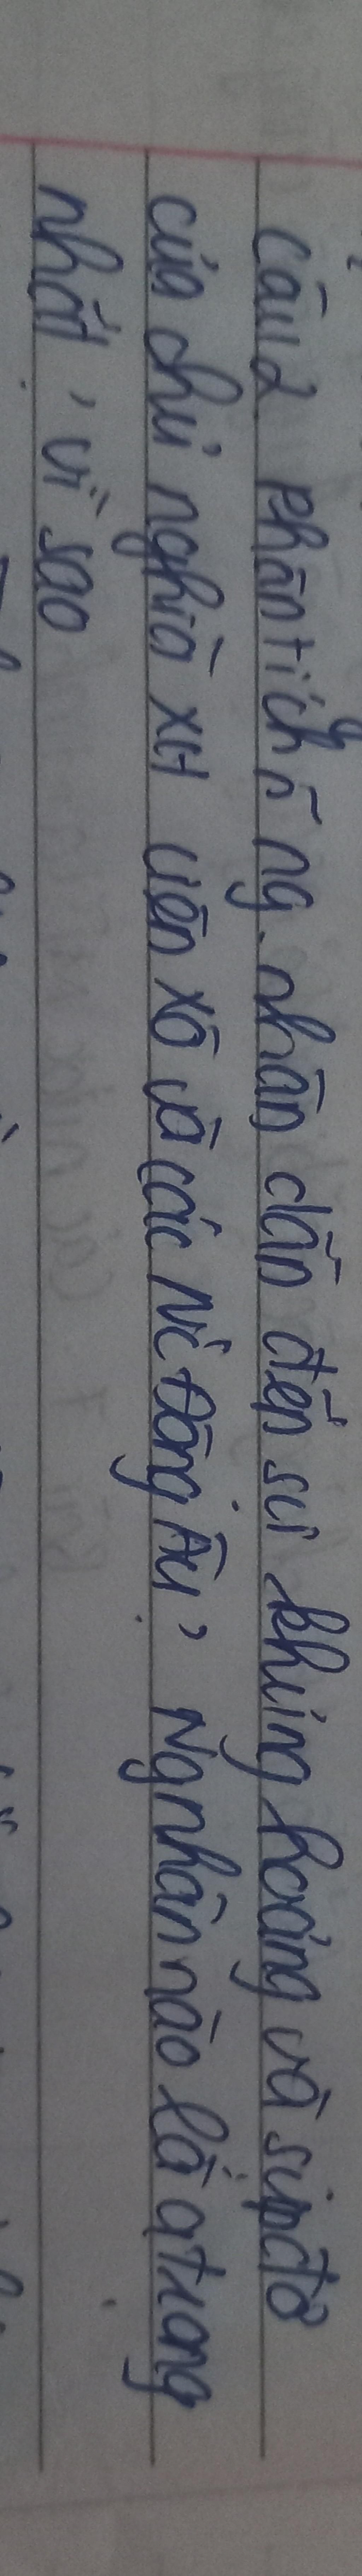 câu 2 phân tích ~ ng.nhân dẫn đến sự khủng hoảng và sụp đổ
của chủ nghĩa XH Liên xô và các Nc Đông Âu, Ng nhân nào là qtrọng
nhất, vì sao